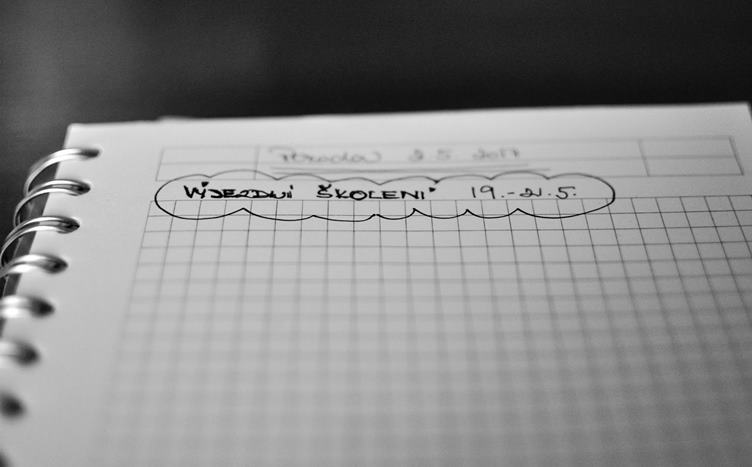 Porada 2.5. 2017
VÝJEZDNÍ ŠKOLENÍ 19.-21.5.